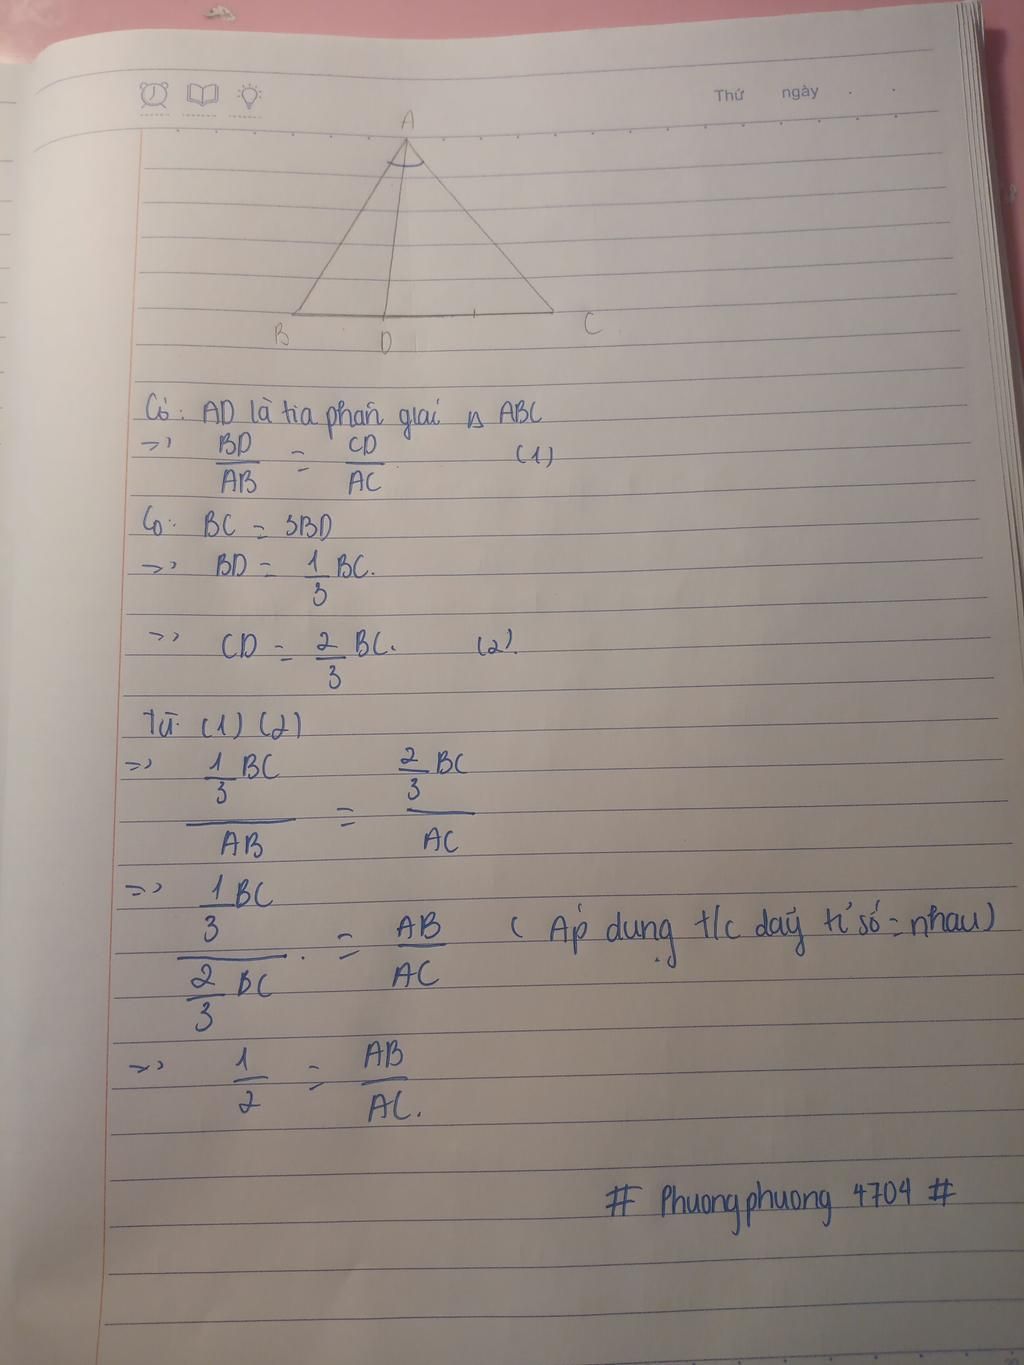 Thứ ngày
A
B D C
Có: AD là tia phân giác △ ABC
=> BD/AB = CD/AC (1)
Có: BC = 3BD
=> BD = 1/3 BC.
=> CD = 2/3 BC. (2).
Từ (1) (2)
=> 1/3 BC / AB = 2/3 BC / AC
=> 1/3 BC / 2/3 BC = AB/AC (Áp dụng t/c dãy tỉ số = nhau)
=> 1/2 = AB/AC.
# Phuongphuong 4704 #